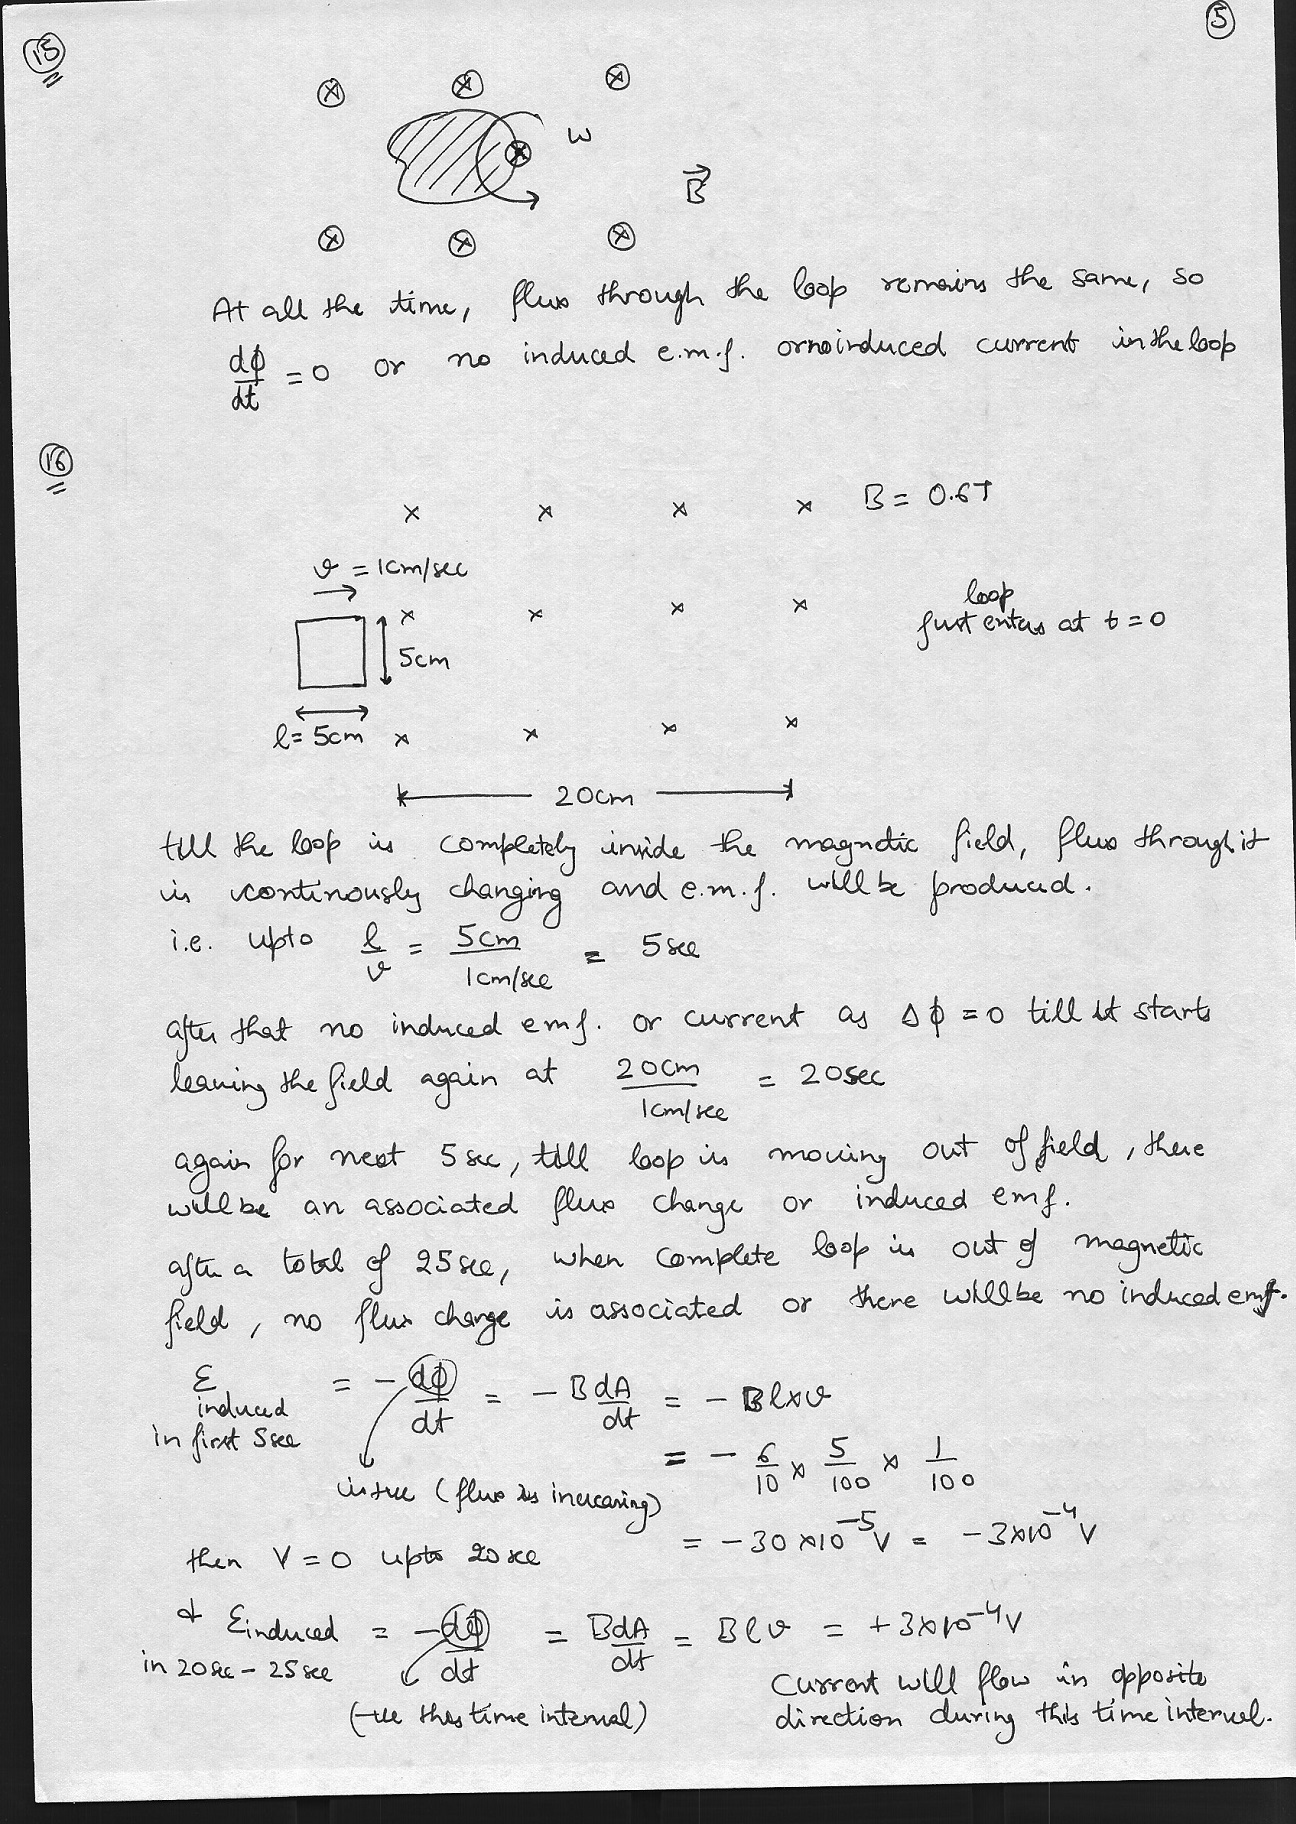 5
15
w
B
At all the time, flux through the loop remains the same, so
dϕ/dt = 0 or no induced e.m.f. or no induced current in the loop
16
B = 0.6T
v = 1cm/sec
loop
just enters at t = 0
5cm
l = 5cm
20cm
till the loop is completely inside the magnetic field, flux through it
is continously changing and e.m.f. will be produced.
i.e. upto l/v = 5cm/1cm/sec = 5 sec
after that no induced emf. or current as Δϕ = 0 till it starts
leaving the field again at 20cm/1cm/sec = 20sec
again for next 5 sec, till loop is moving out of field, there
will be an associated flux change or induced emf.
after a total of 25 sec, when complete loop is out of magnetic
field, no flux change is associated or there will be no induced emf.
ε induced in first 5sec = - dϕ/dt = - B dA/dt = - Bl×v
= - 6/10 × 5/100 × 1/100
is +ve (flux is increasing)
= -30 ×10⁻⁵ V = -3×10⁻⁴ V
then V = 0 upto 20 sec
& ε induced = - dϕ/dt = B dA/dt = Blv = +3×10⁻⁴ V
in 20 sec - 25 sec
(-ve this time interval)
Current will flow in opposite
direction during this time interval.